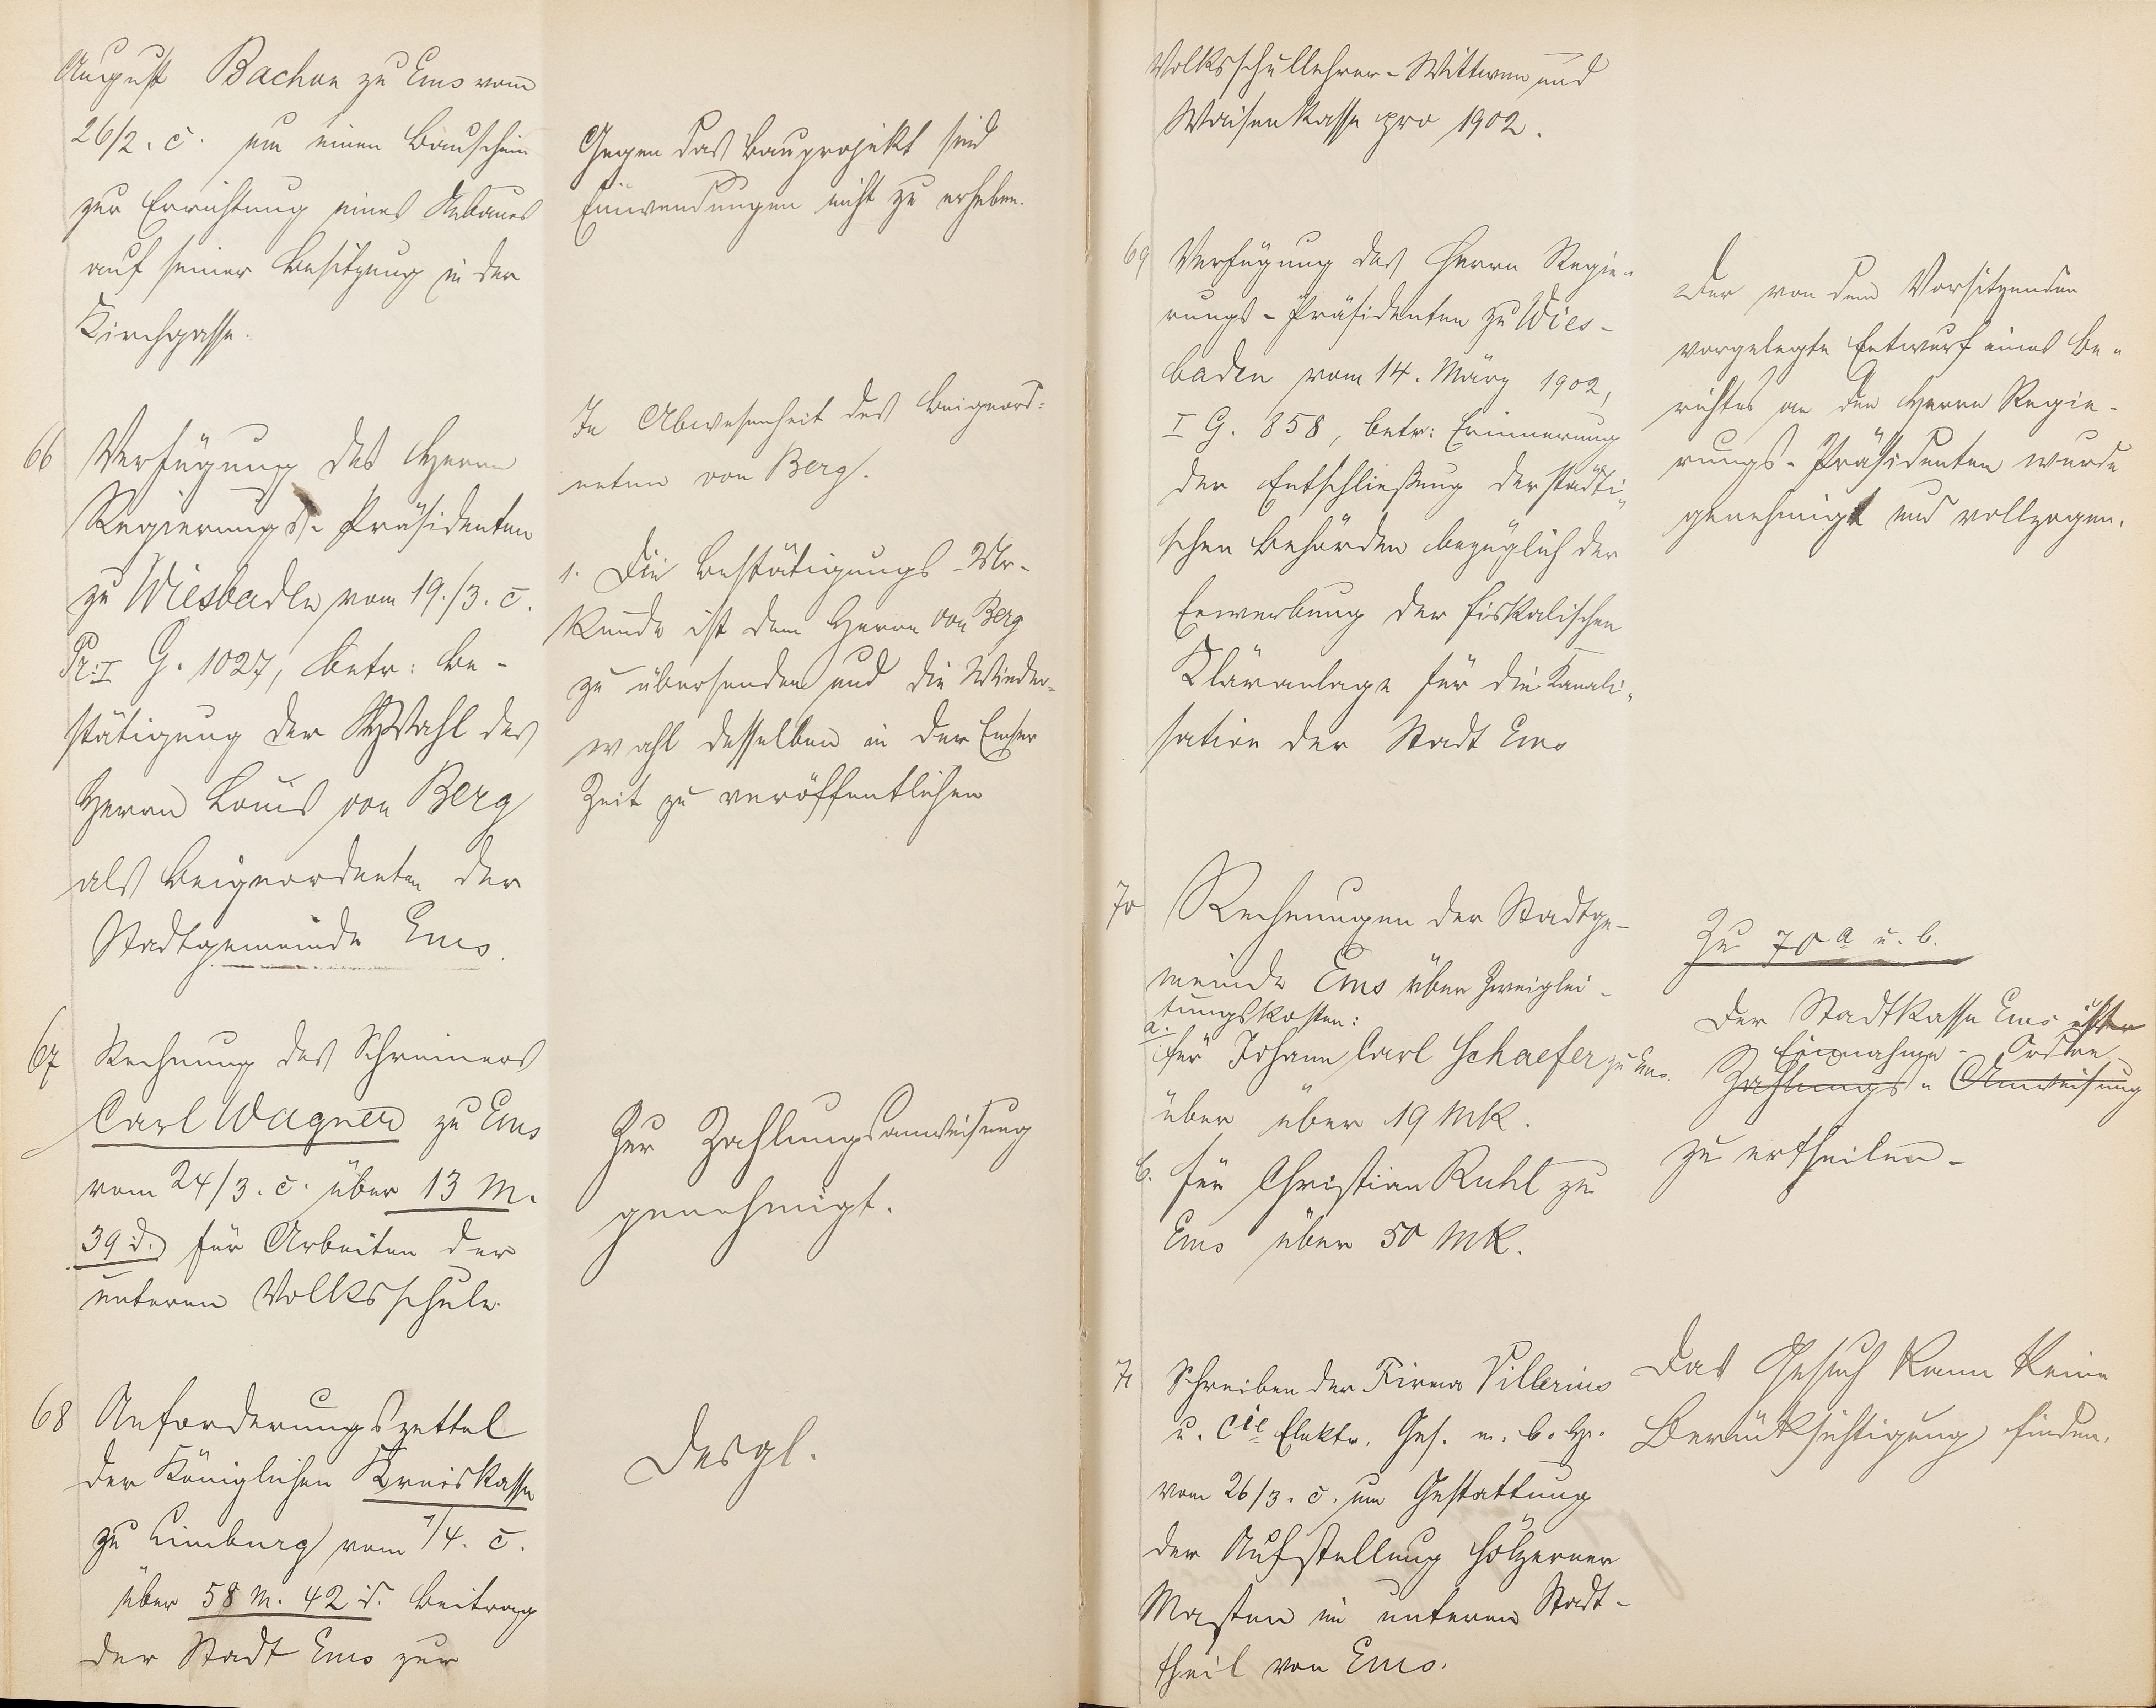 August Bachon zu Ems vom
26/2. c. um einen Bauschein
zur Errichtung eines Anbaues
auf seiner Besitzung in der
Kirchgasse.
Gegen das Bauprojekt sind
Einwendungen nicht zu erheben.
66 Verfügung des Herrn
Regierungs-Präsidenten
zu Wiesbaden vom 19./3. c.
Pr. I G. 1027, betr: Be-
stätigung der Wahl des
Herrn Louis von Berg
als Beigeordneten der
Stadtgemeinde Ems.
In Abwesenheit des Beigeord-
neten von Berg.
1. Die Bestätigungs-Ur-
kunde ist dem Herrn von Berg
zu übersenden und die Wieder-
wahl desselben in der Emser
Zeit zu veröffentlichen
67 Rechnung des Schreiners
Carl Wagner zu Ems
vom 24/3. c. über 13 M.
39 d. für Arbeiten der
unteren Volksschule.
Zur Zahlungsanweisung
genehmigt.
68 Anforderungszettel
der Königlichen Kreiskasse
zu Limburg vom 1/4. c.
über 58 M. 42 d. Beitrag
der Stadt Ems zur
Desgl.
Volksschullehrer-Wittwen und
Waisenkasse pro 1902.
69 Verfügung des Herrn Regie-
rungs-Präsidenten zu Wies-
baden vom 14. März 1902,
I G. 858, betr: Erinnerung
der Entschließung der städti-
schen Behörden bezüglich der
Erwerbung der fiskalischen
Kläranlage für die Kanali-
sation der Stadt Ems
Der von dem Vorsitzenden
vorgelegte Entwurf eines Be-
richtes an den Herrn Regie-
rungs-Präsidenten wurde
genehmigt und vollzogen.
70 Rechnungen der Stadtge-
meinde Ems über Zweiglei-
tungskosten:
a. für Johann Carl Schaefer zu Ems
über über 19 Mk.
b. für Christian Ruhl zu
Ems über 50 Mk.
Zu 70 a u. b.
Der Stadtkasse Ems ist
Einnahme - Ordre
Zahlungs-Anweisung
zu ertheilen-
71 Schreiben der Firma Villerius
u. Cie Elektr. Ges. m. b. H.
vom 26/3. c. um Gestattung
der Aufstellung hölzerner
Masten im unteren Stadt-
theil von Ems.
Das Gesuch kann keine
Berücksichtigung finden.